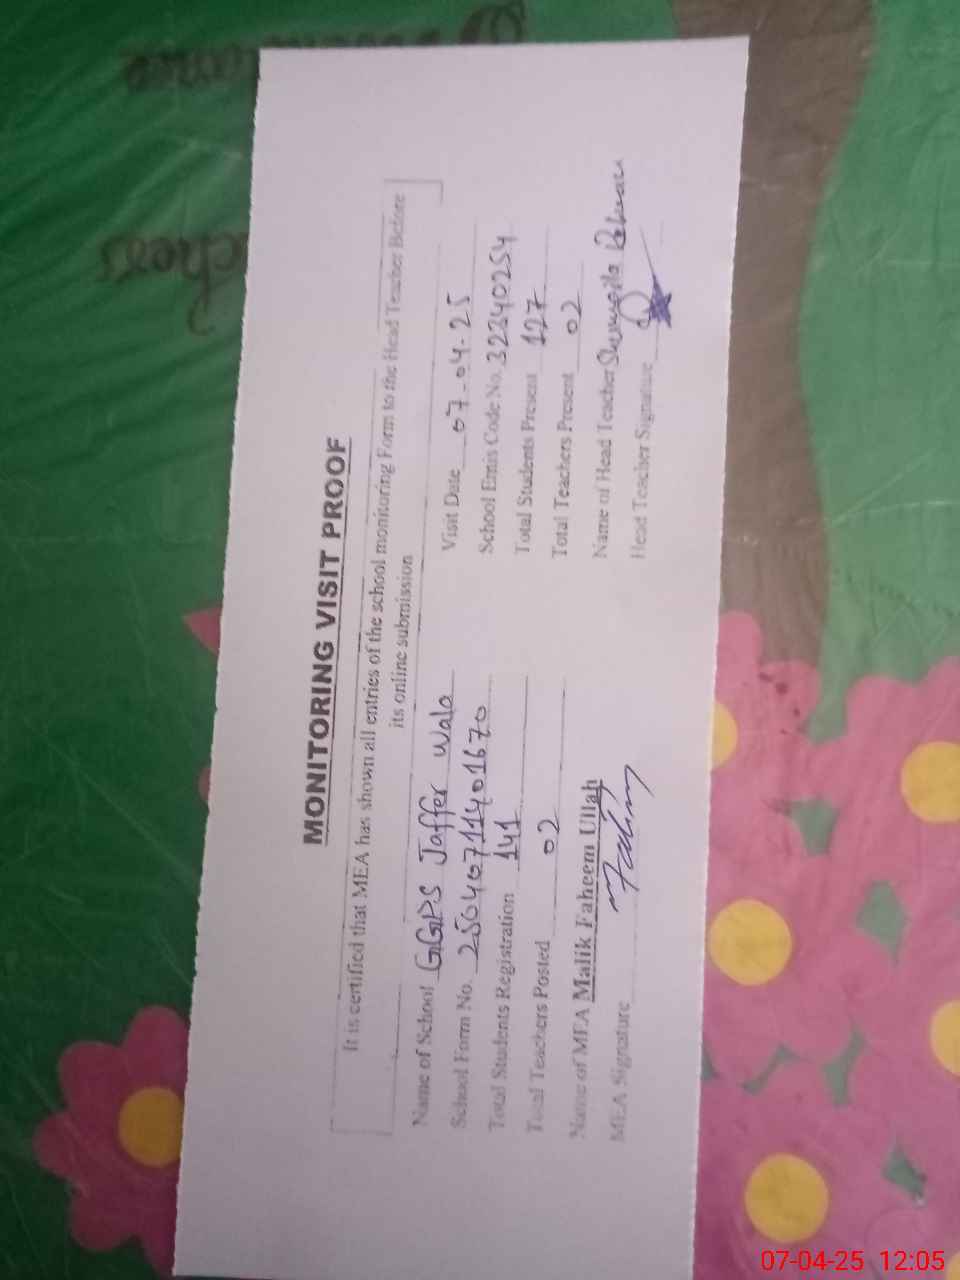 MONITORING VISIT PROOF
It is certified that MEA has shown all entries of the school monitoring Form to the Head Teacher Before
its online submission
Name of School GGPS Jaffer Wala
Visit Date 07-04-25
School Form No. 25040711401670
School Emis Code No. 32240254
Total Students Registration 141
Total Students Present 127
Total Teachers Posted 02
Total Teachers Present 02
Name of MEA Malik Faheem Ullah
Name of Head Teacher Rehman
MEA Signature
Head Teacher Signature
07-04-25 12:05